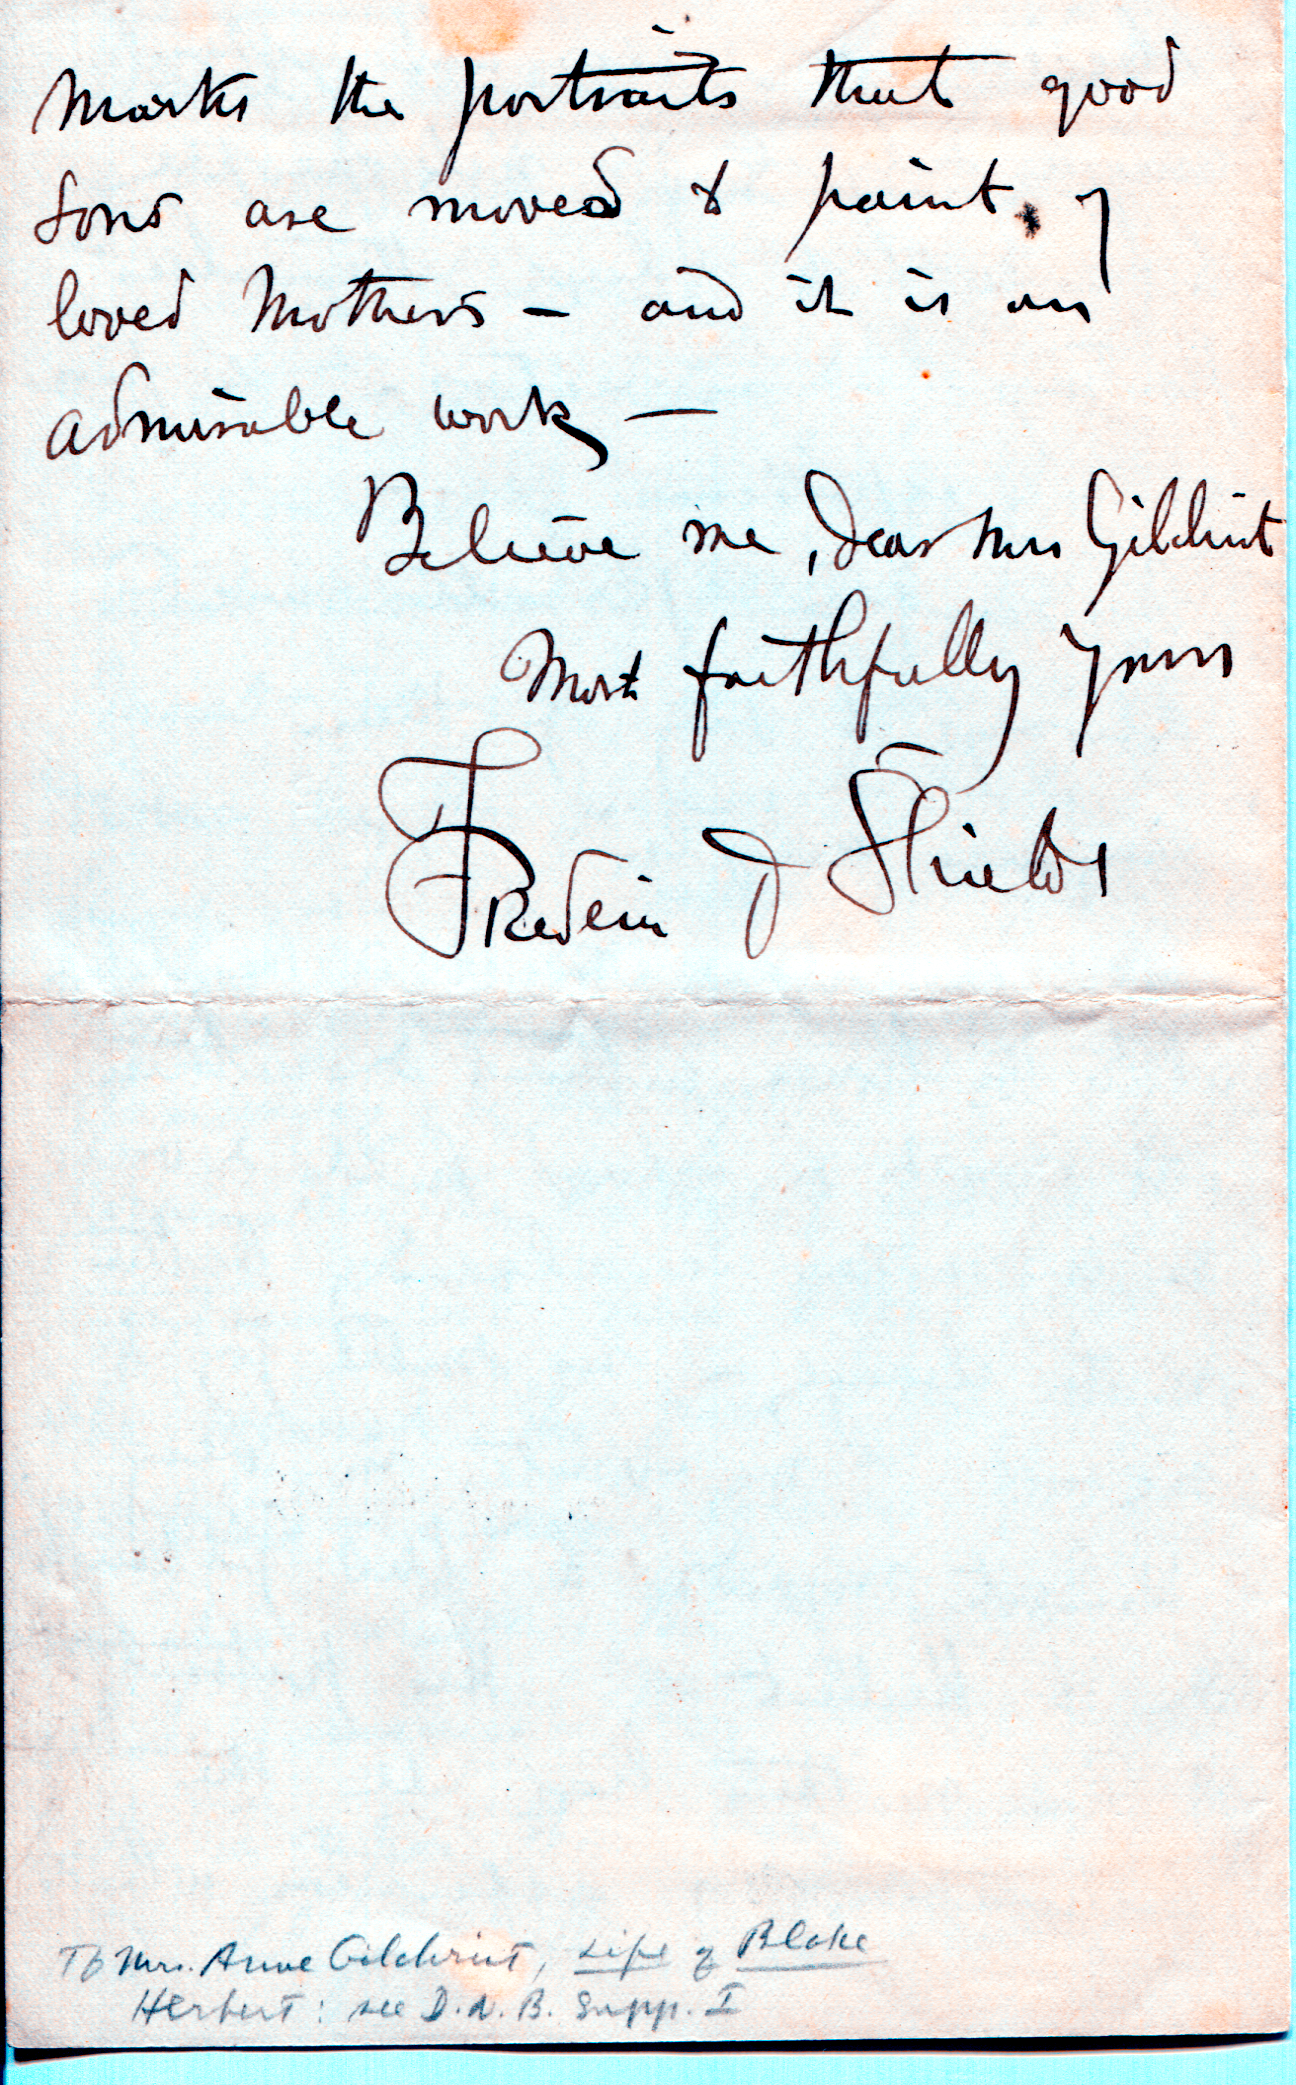 marks the portraits that good
sons are moved to paint, of
loved Mothers – and it is an
admirable work –
Believe me, Dear Mrs Gilchrist
Most faithfully yours
Frederic J Shields
To Mrs. Anne Gilchrist, Life of Blake
Herbert: see D.N.B. Supp. I